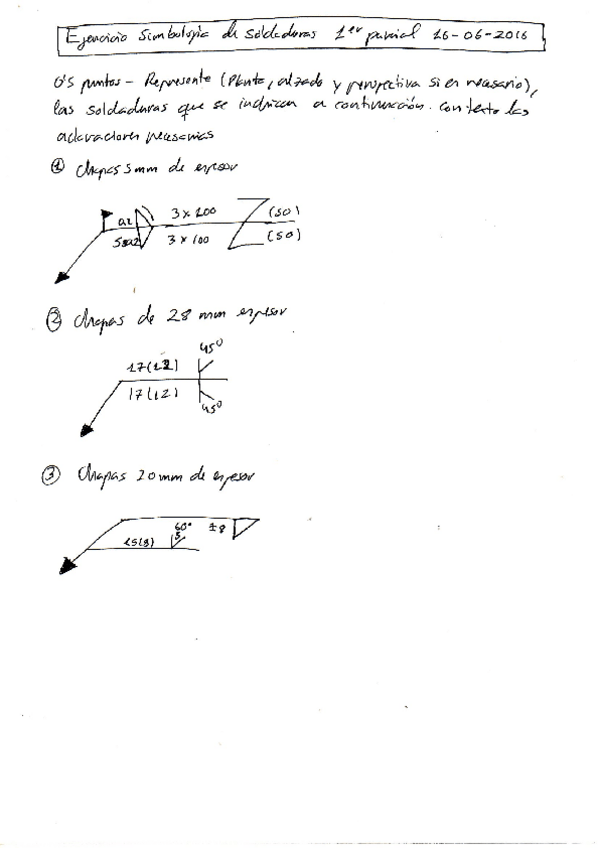 Ejercicio Simbología de soldaduras 1er parcial 16-06-2016
0'5 puntos - Represente (Planta, alzado y perspectiva si es necesario),
las soldaduras que se indican a continuación. Con texto las
aclaraciones necesarias
① Chapas 5mm de espesor
a2 3 x 100 (50)
3 x 100 (50)
② Chapas de 28 mm espesor
45º
17(12)
17(12)
45º
③ Chapas 20mm de espesor
60°